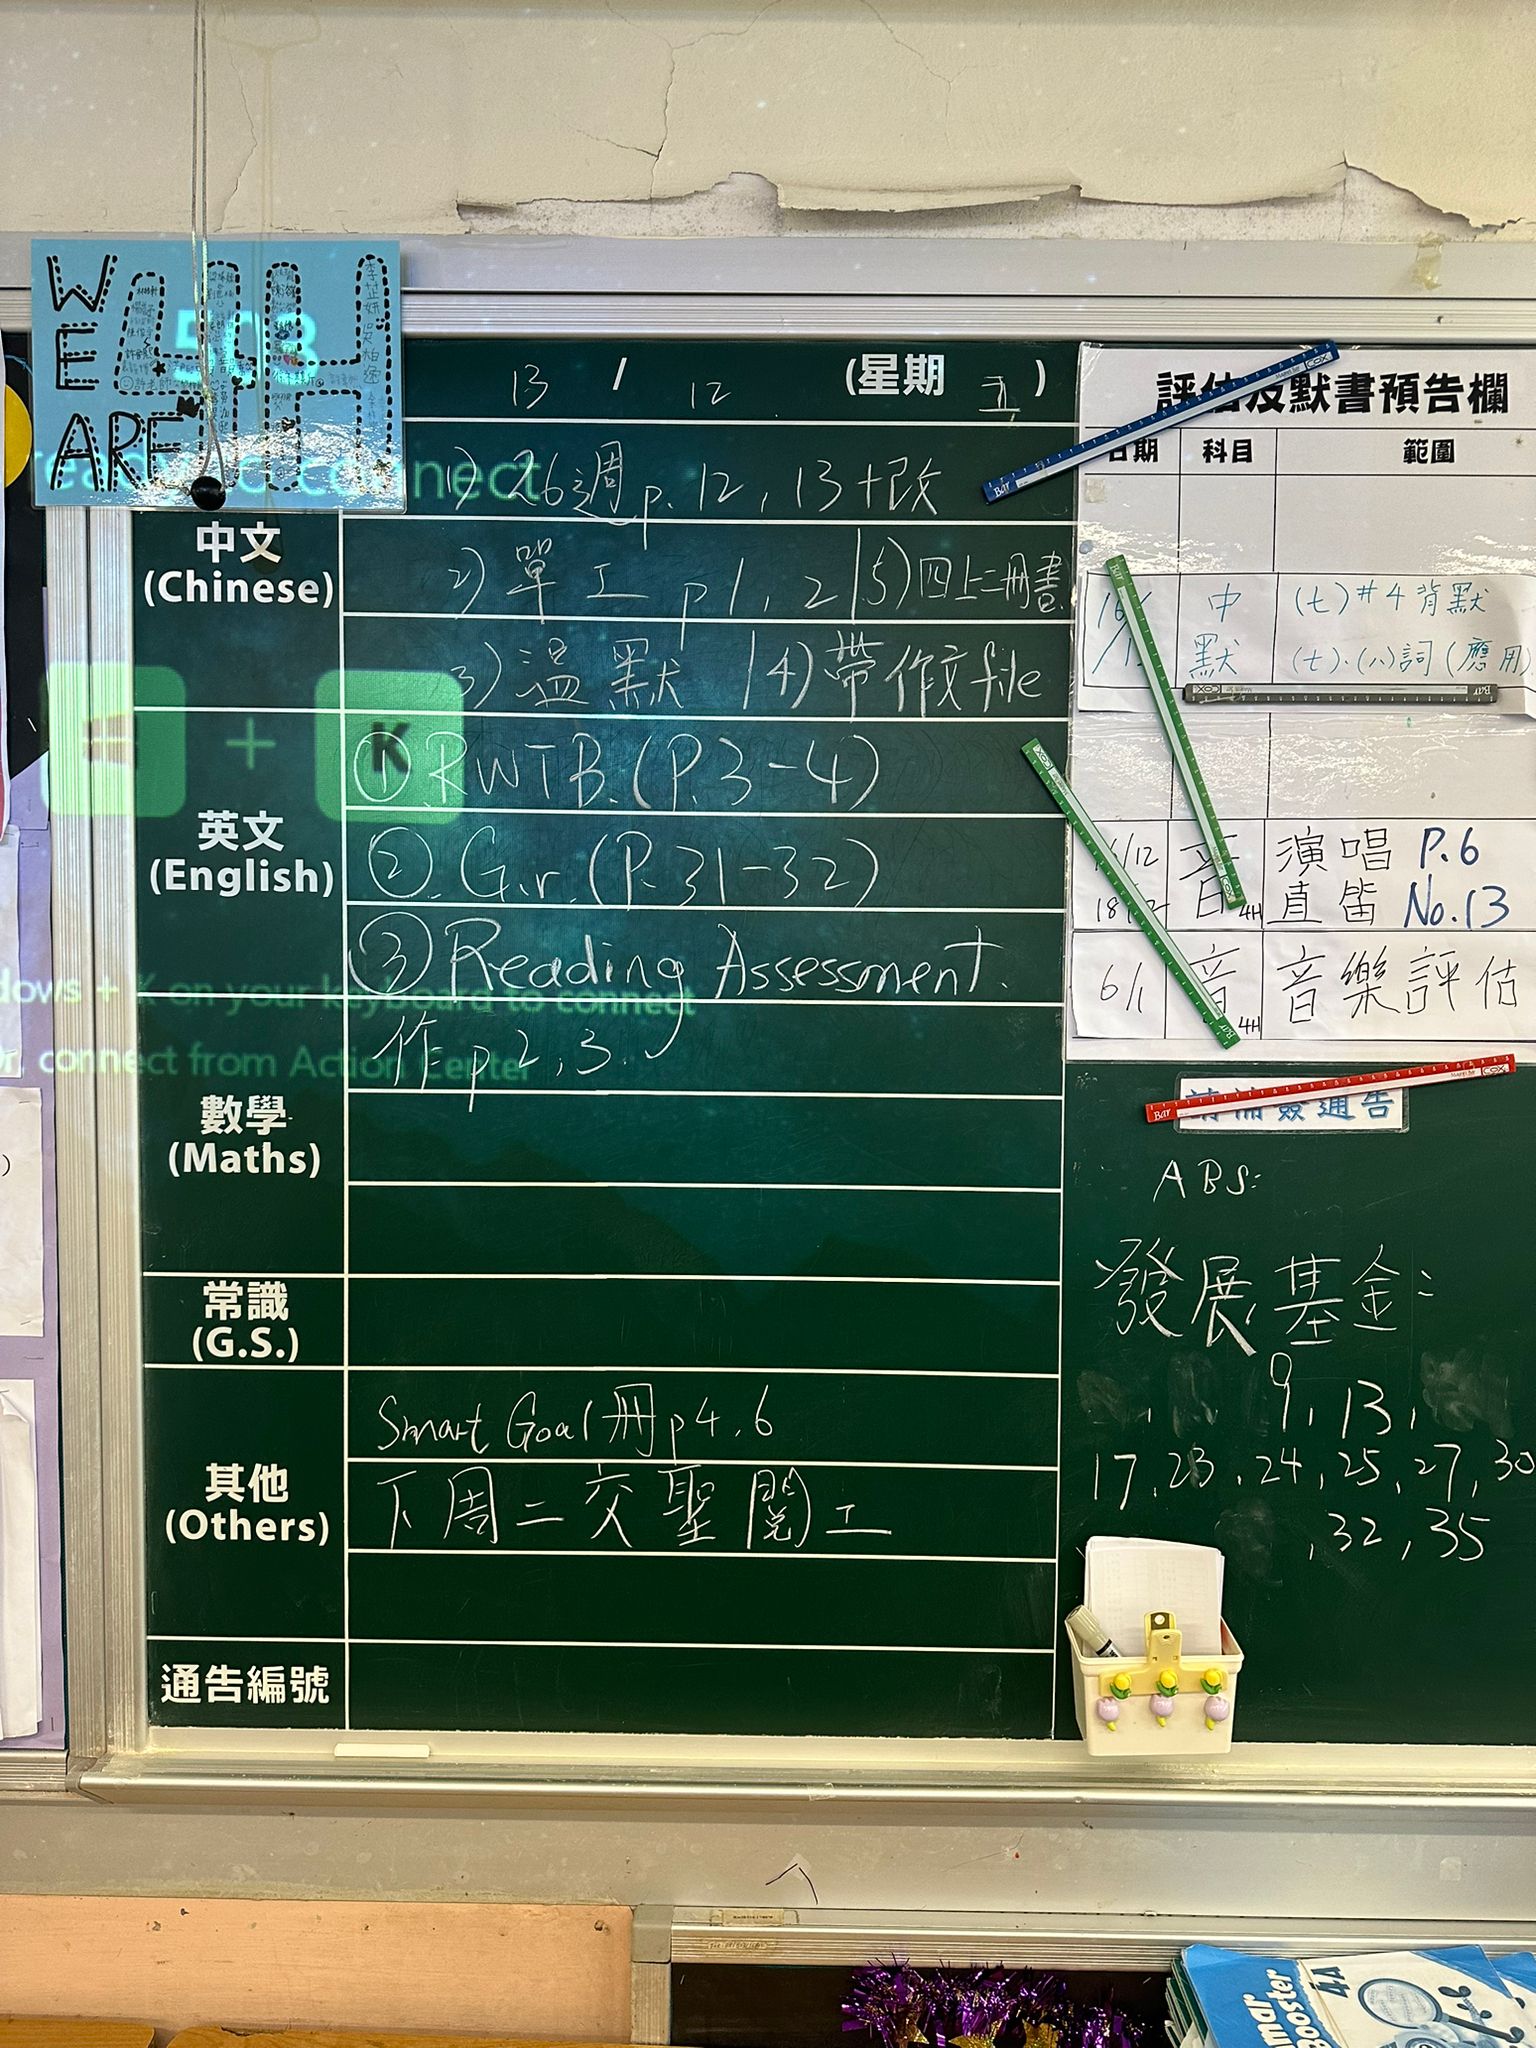 WE ARE 4H
13 / 12 (星期 五 )
中文
(Chinese)
1) 26週 p. 12, 13 + 改
2) 單工 p1, 2 | 5) 四上二冊書
3) 溫默 | 4) 帶作文file
英文
(English)
① RWTB. (P.3-4)
②. Gr. (P.31-32)
③ Reading Assessment.
數學
(Maths)
作 p2, 3.
常識
(G.S.)
其他
(Others)
Smart Goal冊 p4, 6
下周二交聖閱工
通告編號
connect
+ K
K on your keyboard to connect
or, connect from Action Center
評估及默書預告欄
日期 科目 範圍
中默 (七)#4背默
(七)、(八)詞(應用)
16/12
18/12 音 4H 演唱 P.6
直笛 No.13
6/1 音 4H 音樂評估
通告
ABS:
發展基金:
9, 13,
17, 23, 24, 25, 27, 30
, 32, 35
Bar
COX
4A
Booster